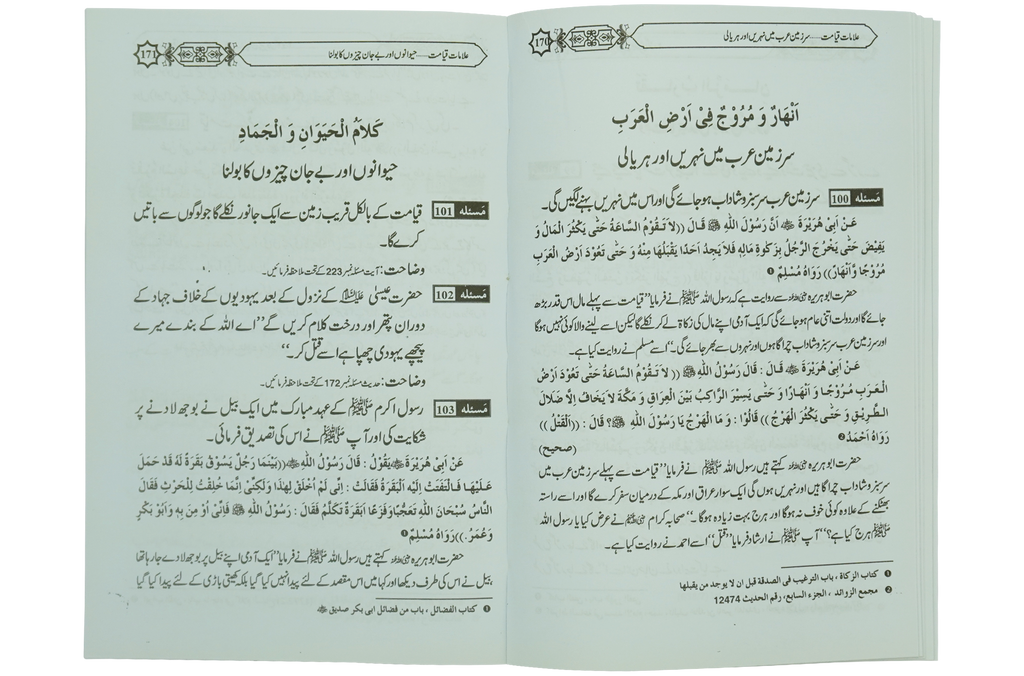 علامات قیامت ..... سرزمین عرب میں نہریں اور ہریالی
170
اَنْهَارٌ وَ مُرُوْجٌ فِىْ اَرْضِ الْعَرَبِ
سرزمین عرب میں نہریں اور ہریالی
مَسئله 100 سرزمین عرب سرسبز و شاداب ہو جائے گی اور اس میں نہریں بہنے لگیں گی۔
عَنْ اَبِىْ هُرَيْرَةَ ﷜ اَنَّ رَسُوْلَ اللّٰهِ ﷺ قَالَ ((لاَ تَقُوْمُ السَّاعَةُ حَتّٰى يَكْثُرَ الْمَالُ وَ
يَفِيْضَ حَتّٰى يَخْرُجَ الرَّجُلُ بِزَكٰوةِ مَالِهٖ فَلاَ يَجِدُ اَحَدًا يَقْبَلُهَا مِنْهُ وَ حَتّٰى تَعُوْدَ اَرْضُ الْعَرَبِ
مُرُوْجًا وَّ اَنْهَارًا)) رَوَاهُ مُسْلِمٌ ❶
حضرت ابوہریرہ ﷜ سے روایت ہے کہ رسول اللہ ﷺ نے فرمایا ’’قیامت سے پہلے مال اس قدر بڑھ
جائے گا اور دولت اتنی عام ہو جائے گی کہ ایک آدمی اپنے مال کی زکاۃ لے کر نکلے گا لیکن اسے لینے والا کوئی نہیں ہوگا
اور سرزمین عرب سرسبز و شاداب چراگاہوں اور نہروں سے بھر جائے گی۔‘‘ اسے مسلم نے روایت کیا ہے۔
عَنْ اَبِىْ هُرَيْرَةَ ﷜ قَالَ : قَالَ رَسُوْلُ اللّٰهِ ﷺ (( لاَ تَقُوْمُ السَّاعَةُ حَتّٰى تَعُوْدَ اَرْضُ
الْعَرَبِ مُرُوْجًا وَ اَنْهَارًا وَ حَتّٰى يَسِيْرَ الرَّاكِبُ بَيْنَ الْعِرَاقِ وَ مَكَّةَ لاَ يَخَافُ اِلَّا ضَلاَلَ
الطَّرِيْقِ وَ حَتّٰى يَكْثُرَ الْهَرْجُ )) قَالُوْا : وَ مَا الْهَرْجُ يَا رَسُوْلَ اللّٰهِ ﷺ؟ قَالَ : ((اَلْقَتْلُ ))
رَوَاهُ اَحْمَدُ ❷ (صحیح)
حضرت ابوہریرہ ﷜ کہتے ہیں رسول اللہ ﷺ نے فرمایا ’’قیامت سے پہلے سرزمین عرب میں
سرسبز و شاداب چراگاہیں اور نہریں ہوں گی ایک سوار عراق اور مکہ کے درمیان سفر کرے گا اور اسے راستہ
بھٹکنے کے علاوہ کوئی خوف نہ ہوگا اور ہرج بہت زیادہ ہوگا۔‘‘ صحابہ کرام ﷢ نے عرض کیا یا رسول اللہ
ﷺ ہرج کیا ہے؟‘‘ آپ ﷺ نے ارشاد فرمایا ’’قتل‘‘ اسے احمد نے روایت کیا ہے۔
❶ کتاب الزکاة ، باب الترغیب فی الصدقة قبل ان لا یوجد من یقبلها
❷ مجمع الزوائد ، الجزء السابع، رقم الحدیث 12474
علامات قیامت ..... حیوانوں اور بے جان چیزوں کا بولنا
171
كَلاَمُ الْحَيَوَانِ وَ الْجَمَادِ
حیوانوں اور بے جان چیزوں کا بولنا
مَسئله 101 قیامت کے بالکل قریب زمین سے ایک جانور نکلے گا جو لوگوں سے باتیں
کرے گا۔
وضاحت : آیت مسئلہ نمبر 223 کے تحت ملاحظہ فرمائیں۔
مَسئله 102 حضرت عیسیٰ علیہ السلام کے نزول کے بعد یہودیوں کے خلاف جہاد کے
دوران پتھر اور درخت کلام کریں گے ’’اے اللہ کے بندے میرے
پیچھے یہودی چھپا ہے اسے قتل کر۔‘‘
وضاحت : حدیث مسئلہ نمبر 172 کے تحت ملاحظہ فرمائیں۔
مَسئله 103 رسول اکرم ﷺ کے عہد مبارک میں ایک بیل نے بوجھ لادنے پر
شکایت کی اور آپ ﷺ نے اس کی تصدیق فرمائی۔
عَنْ اَبِىْ هُرَيْرَةَ ﷜ يَقُوْلُ : قَالَ رَسُوْلُ اللّٰهِ ﷺ ((بَيْنَمَا رَجُلٌ يَسُوْقُ بَقَرَةً لَهُ قَدْ حَمَلَ
عَلَيْهَا فَالْتَفَتَتْ اِلَيْهِ الْبَقَرَةُ فَقَالَتْ : اِنِّى لَمْ اُخْلَقْ لِهٰذَا وَلٰكِنِّى اِنَّمَا خُلِقْتُ لِلْحَرْثِ فَقَالَ
النَّاسُ سُبْحَانَ اللّٰهِ تَعَجُّبًا وَّ فَزَعًا اَبَقَرَةٌ تَكَلَّمُ فَقَالَ : رَسُوْلُ اللّٰهِ ﷺ فَاِنِّى اُوْ مِنُ بِهٖ وَ اَبُوْ بَكْرٍ
وَ عُمَرُ۔))رَوَاهُ مُسْلِمٌ ❶
حضرت ابوہریرہ ﷜ کہتے ہیں رسول اللہ ﷺ نے فرمایا ’’ایک آدمی اپنے بیل پر بوجھ لادے جا رہا تھا
بیل نے اس کی طرف دیکھا اور کہا میں اس مقصد کے لئے پیدا نہیں کیا گیا بلکہ کھیتی باڑی کے لئے پیدا کیا گیا
❶ کتاب الفضائل ، باب من فضائل ابی بکر صدیق ﷜